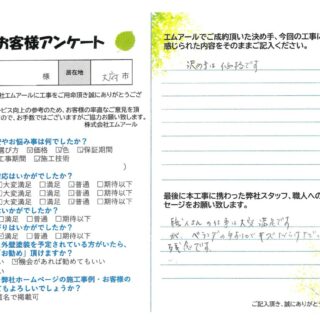 お客様アンケート
様 所在地 大府 市
社エムアールに工事をご用命頂き誠にありがとうござ
ビス向上の参考のため、お客様の率直なご意見を頂
ので、お手数ではございますがご協力お願い致します。
株式会社エムアール
やお悩み事は何でしたか?
選び方 ☑価格 ☑色 ☑保証期間
工事期間 ☑施工技術
対応はいかがでしたか?
□大変満足 □満足 ☑普通 □期待以下
はいかがでしたか?
□大変満足 □満足 ☑普通 □期待以下
がでしたか?
□大変満足 □満足 ☑普通 □期待以下
外壁塗装を予定されている方がいたら、
「お勧め」頂けますか?
い ☑機会があれば勧めてもいい
い
弊社ホームページの施工事例・お客様の
てもよろしいでしょうか?
匿名で掲載可
エムアールでご成約頂いた決め手、今回の工事に
感じられた内容をそのままご記入ください。
決め手は価格です
最後に本工事に携わった弊社スタッフ、職人への
セージをお願い致します。
職人さんの仕事は大変満足です
が、ベランダの
残念です。
ご記入頂き、誠にありがとう